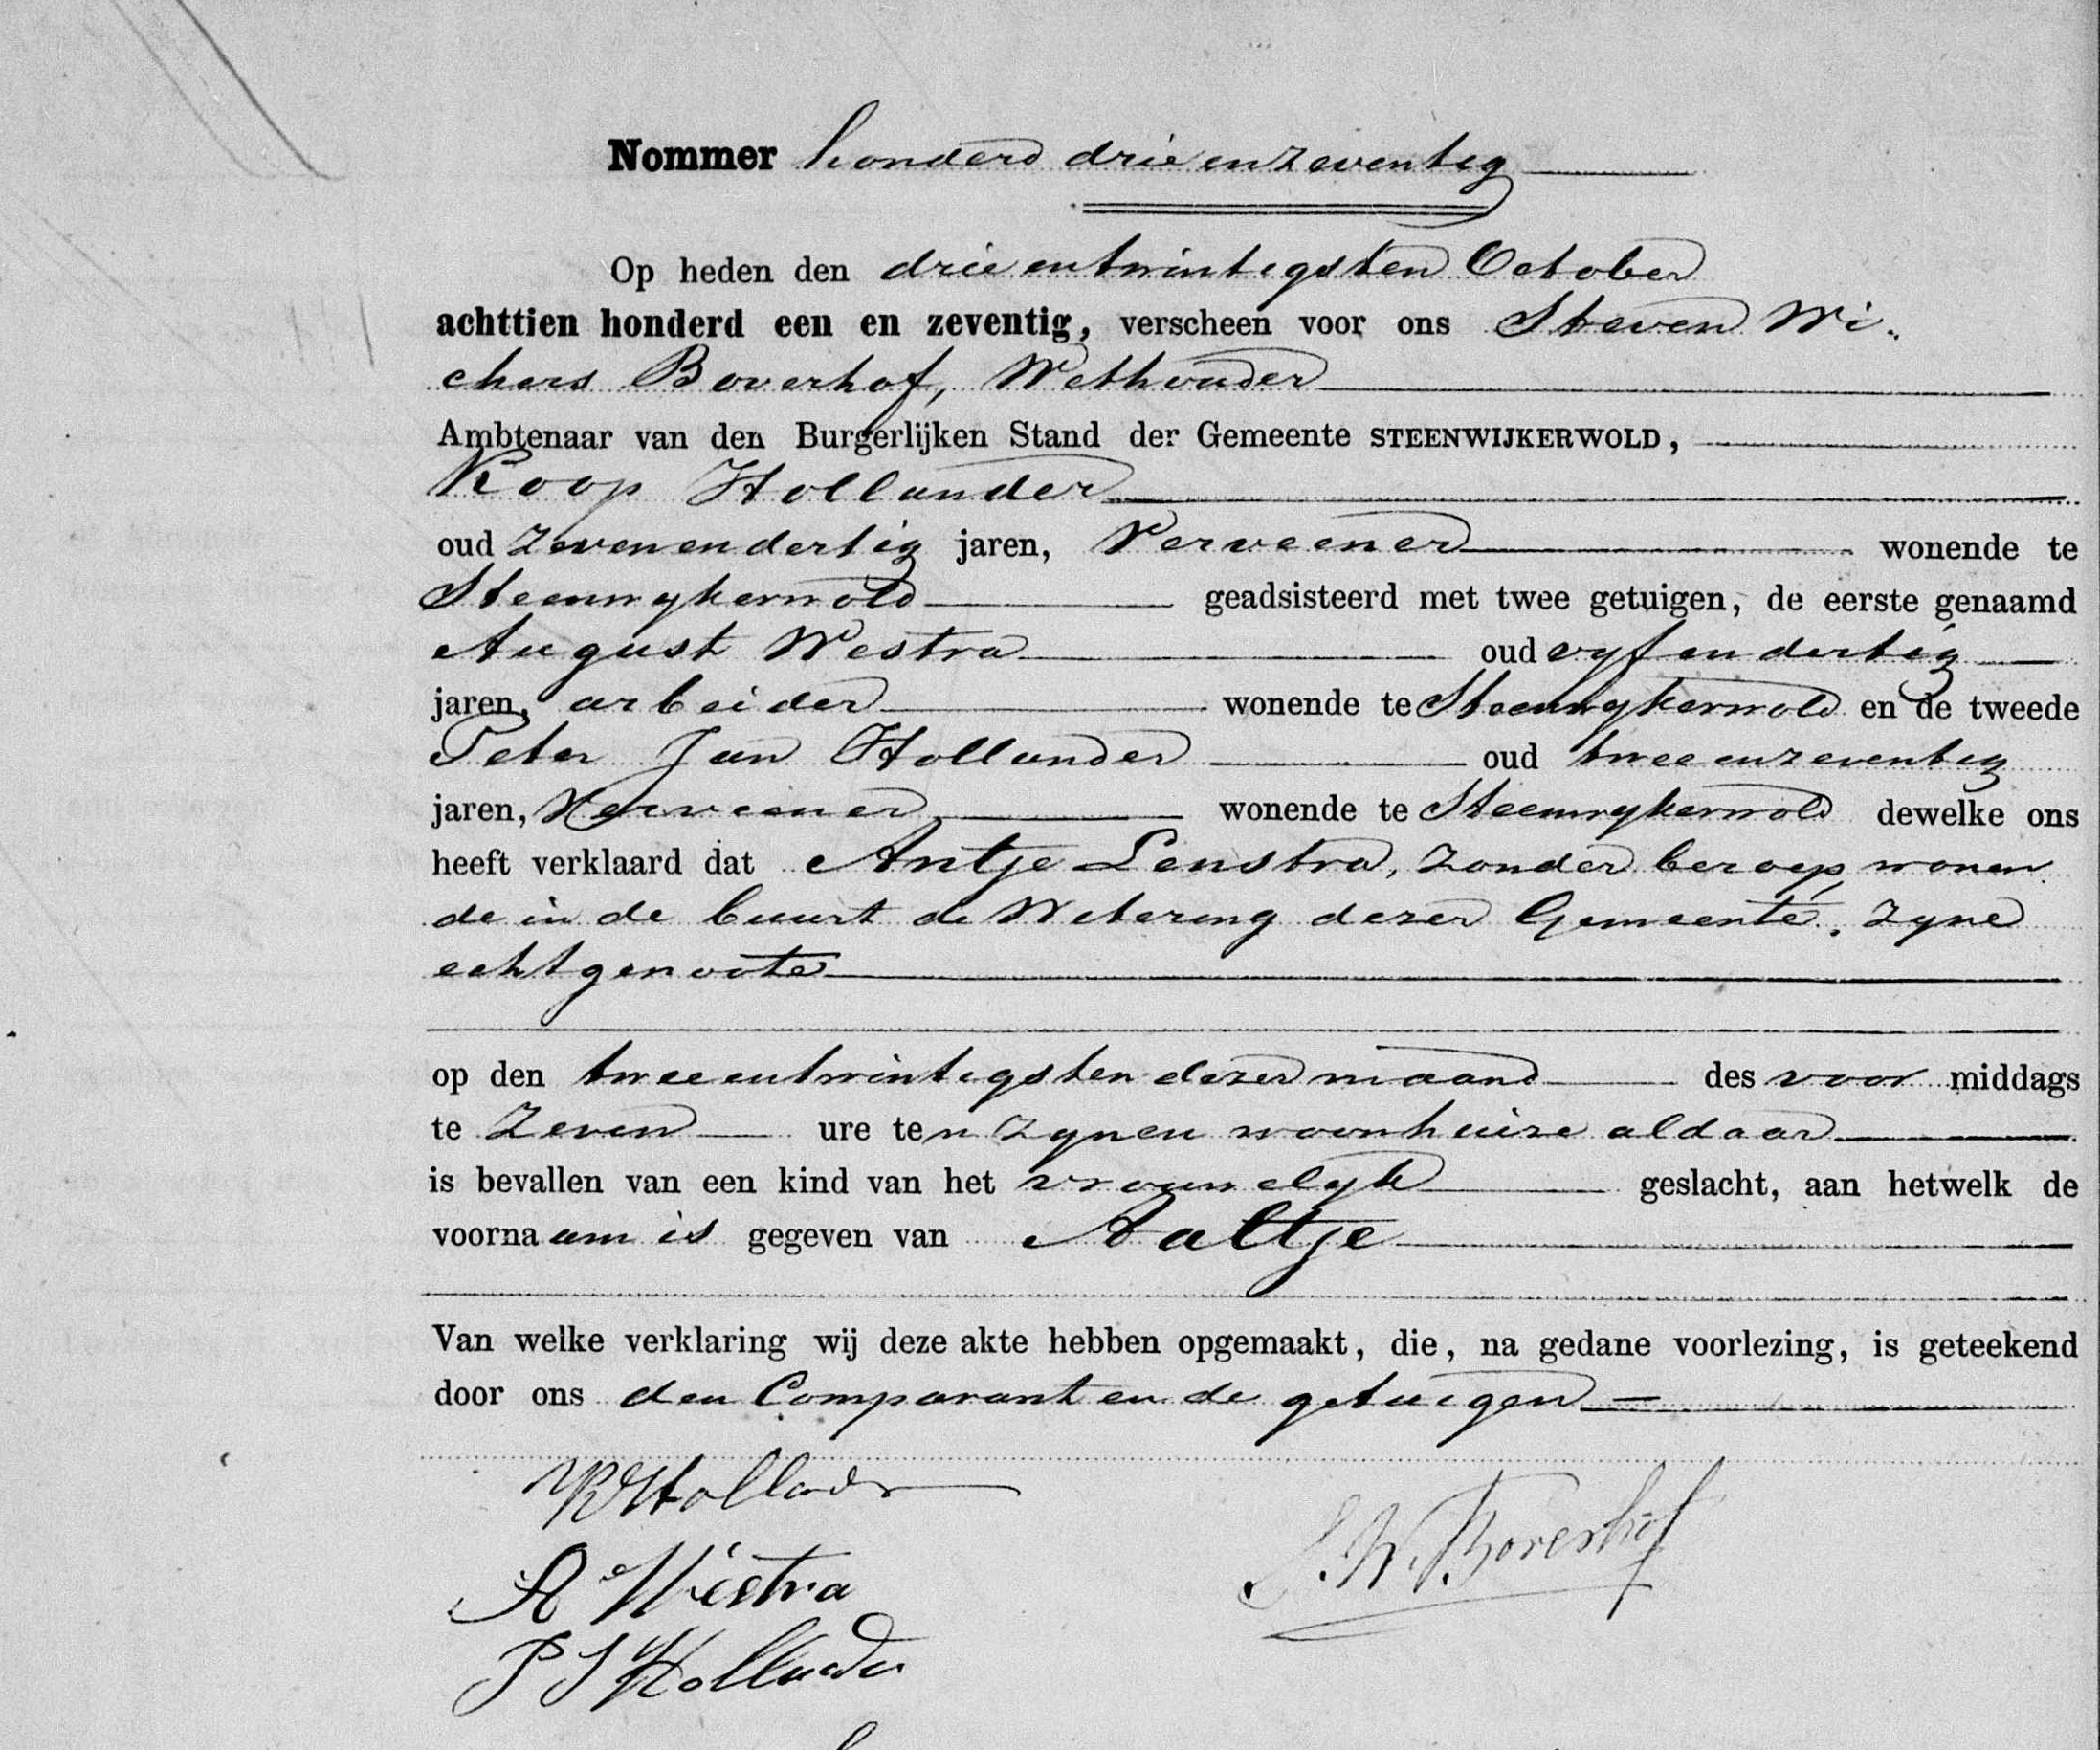 Nommer honderd drie en zeventig
Op heden den drie en twintigsten October
achttien honderd een en zeventig, verscheen voor ons Steven Wi-
chers Boverhof, Wethouder
Ambtenaar van den Burgerlijken Stand der Gemeente STEENWIJKERWOLD,
Roop Hollander
oud zeven en dertig jaren, Verveener wonende te
Steenwykerwold geadsisteerd met twee getuigen, de eerste genaamd
August Westra oud vyf en dertig
jaren, arbeider wonende te Steenwykerwold en de tweede
Peter Jan Hollander oud twee en zeventig
jaren, Verveener wonende te Steenwykerwold dewelke ons
heeft verklaard dat Antje Lenstra, zonder beroep, wonen
de in de buurt de Wetering dezer Gemeente, zyne
echtgenoote
op den twee en twintigsten dezer maand des voor middags
te Zeven ure ten zynen woonhuize aldaar
is bevallen van een kind van het vrouwelyk geslacht, aan hetwelk de
voornaam is gegeven van Aaltje
Van welke verklaring wij deze akte hebben opgemaakt, die, na gedane voorlezing, is geteekend
door ons den Comparant en de getuigen
R Hollander
S. W. Boverhof
A Westra
P J Hollander